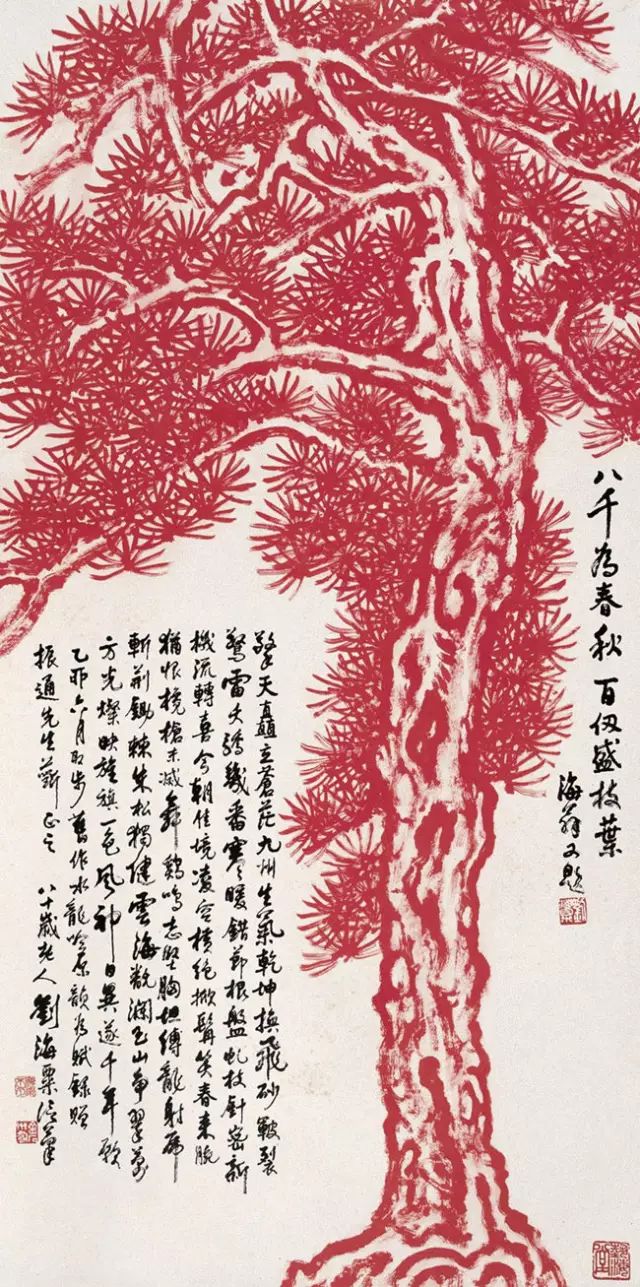 八千為春秋 百仞盛枝葉
海翁又題
擎天矗立蒼茫九州生氣乾坤換飛砂皴裂
驚雷夭矯幾番寒暖錯節根盤虬枝針密新
機流轉喜今朝佳境凌空橫絕掀髯笑春來晚
猶恨欃槍未滅舞鷄鳴志堅胸坦縛龍射虎
斬荊鋤棘朱松獨健雲海翻瀾玉山爭翠萬
方光燦映旌旗一色風神日異遂千年願
乙卯六月步舊作水龍吟原韻為賦錄贈
振通先生蘄正之 八十歲老人劉海粟筆